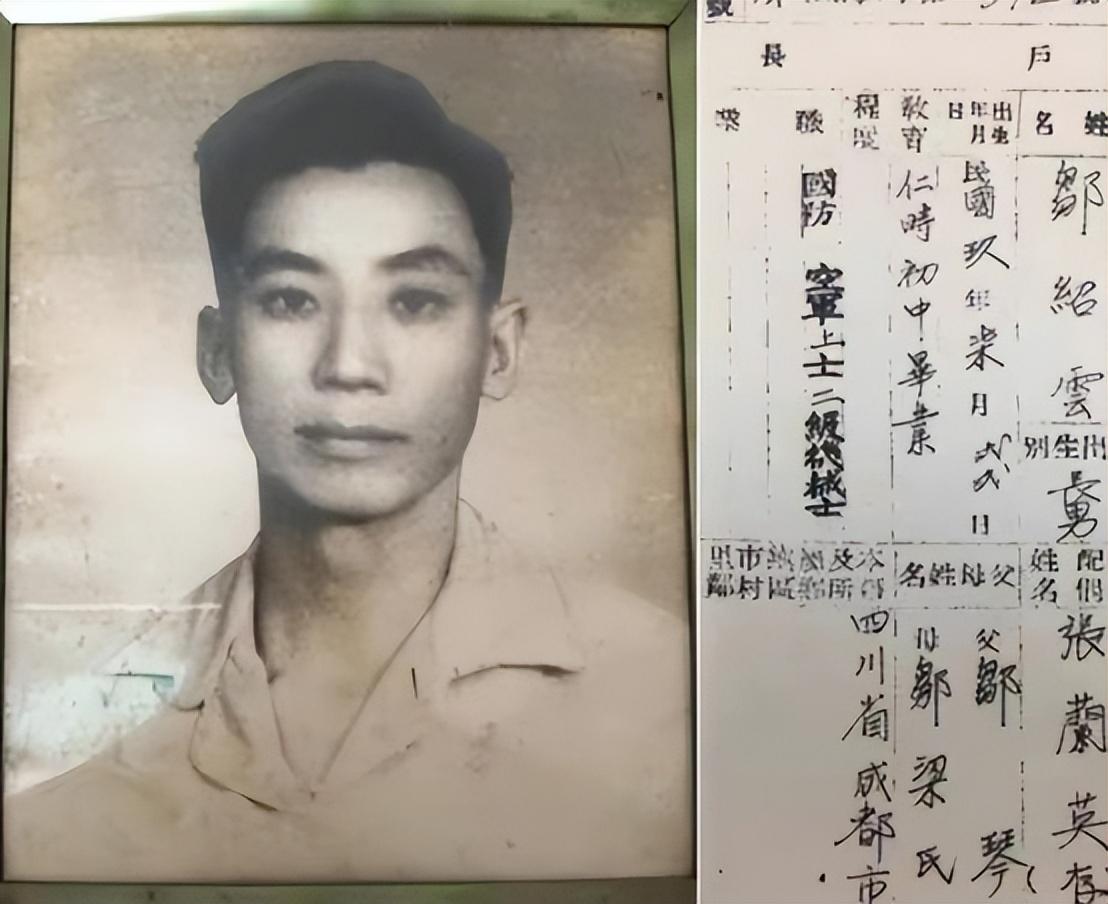 戶長
姓名
鄒紹雲
出生別
長男
出生年月日
民國玖年柒月日
教育程度
仁時初中畢業
職業
國防 空軍上士二級機械士
配偶姓名
張蘭英(存
父母姓名
父鄒琴
母鄒梁氏
四川省成都市